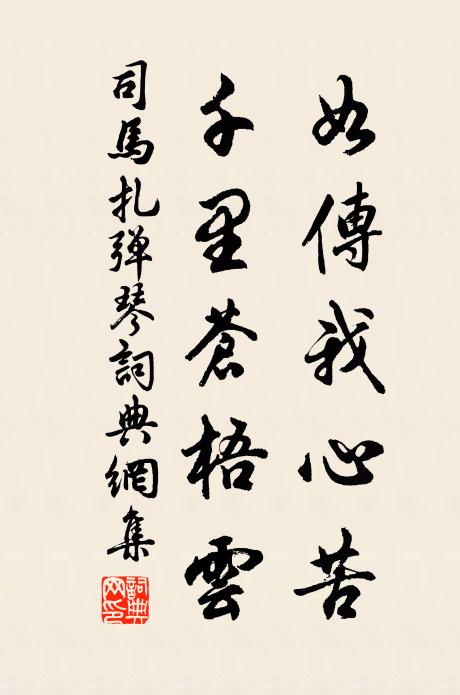 如傳我心苦
千里蒼梧雲
司馬扎弹琴詞典網集
詞典網印